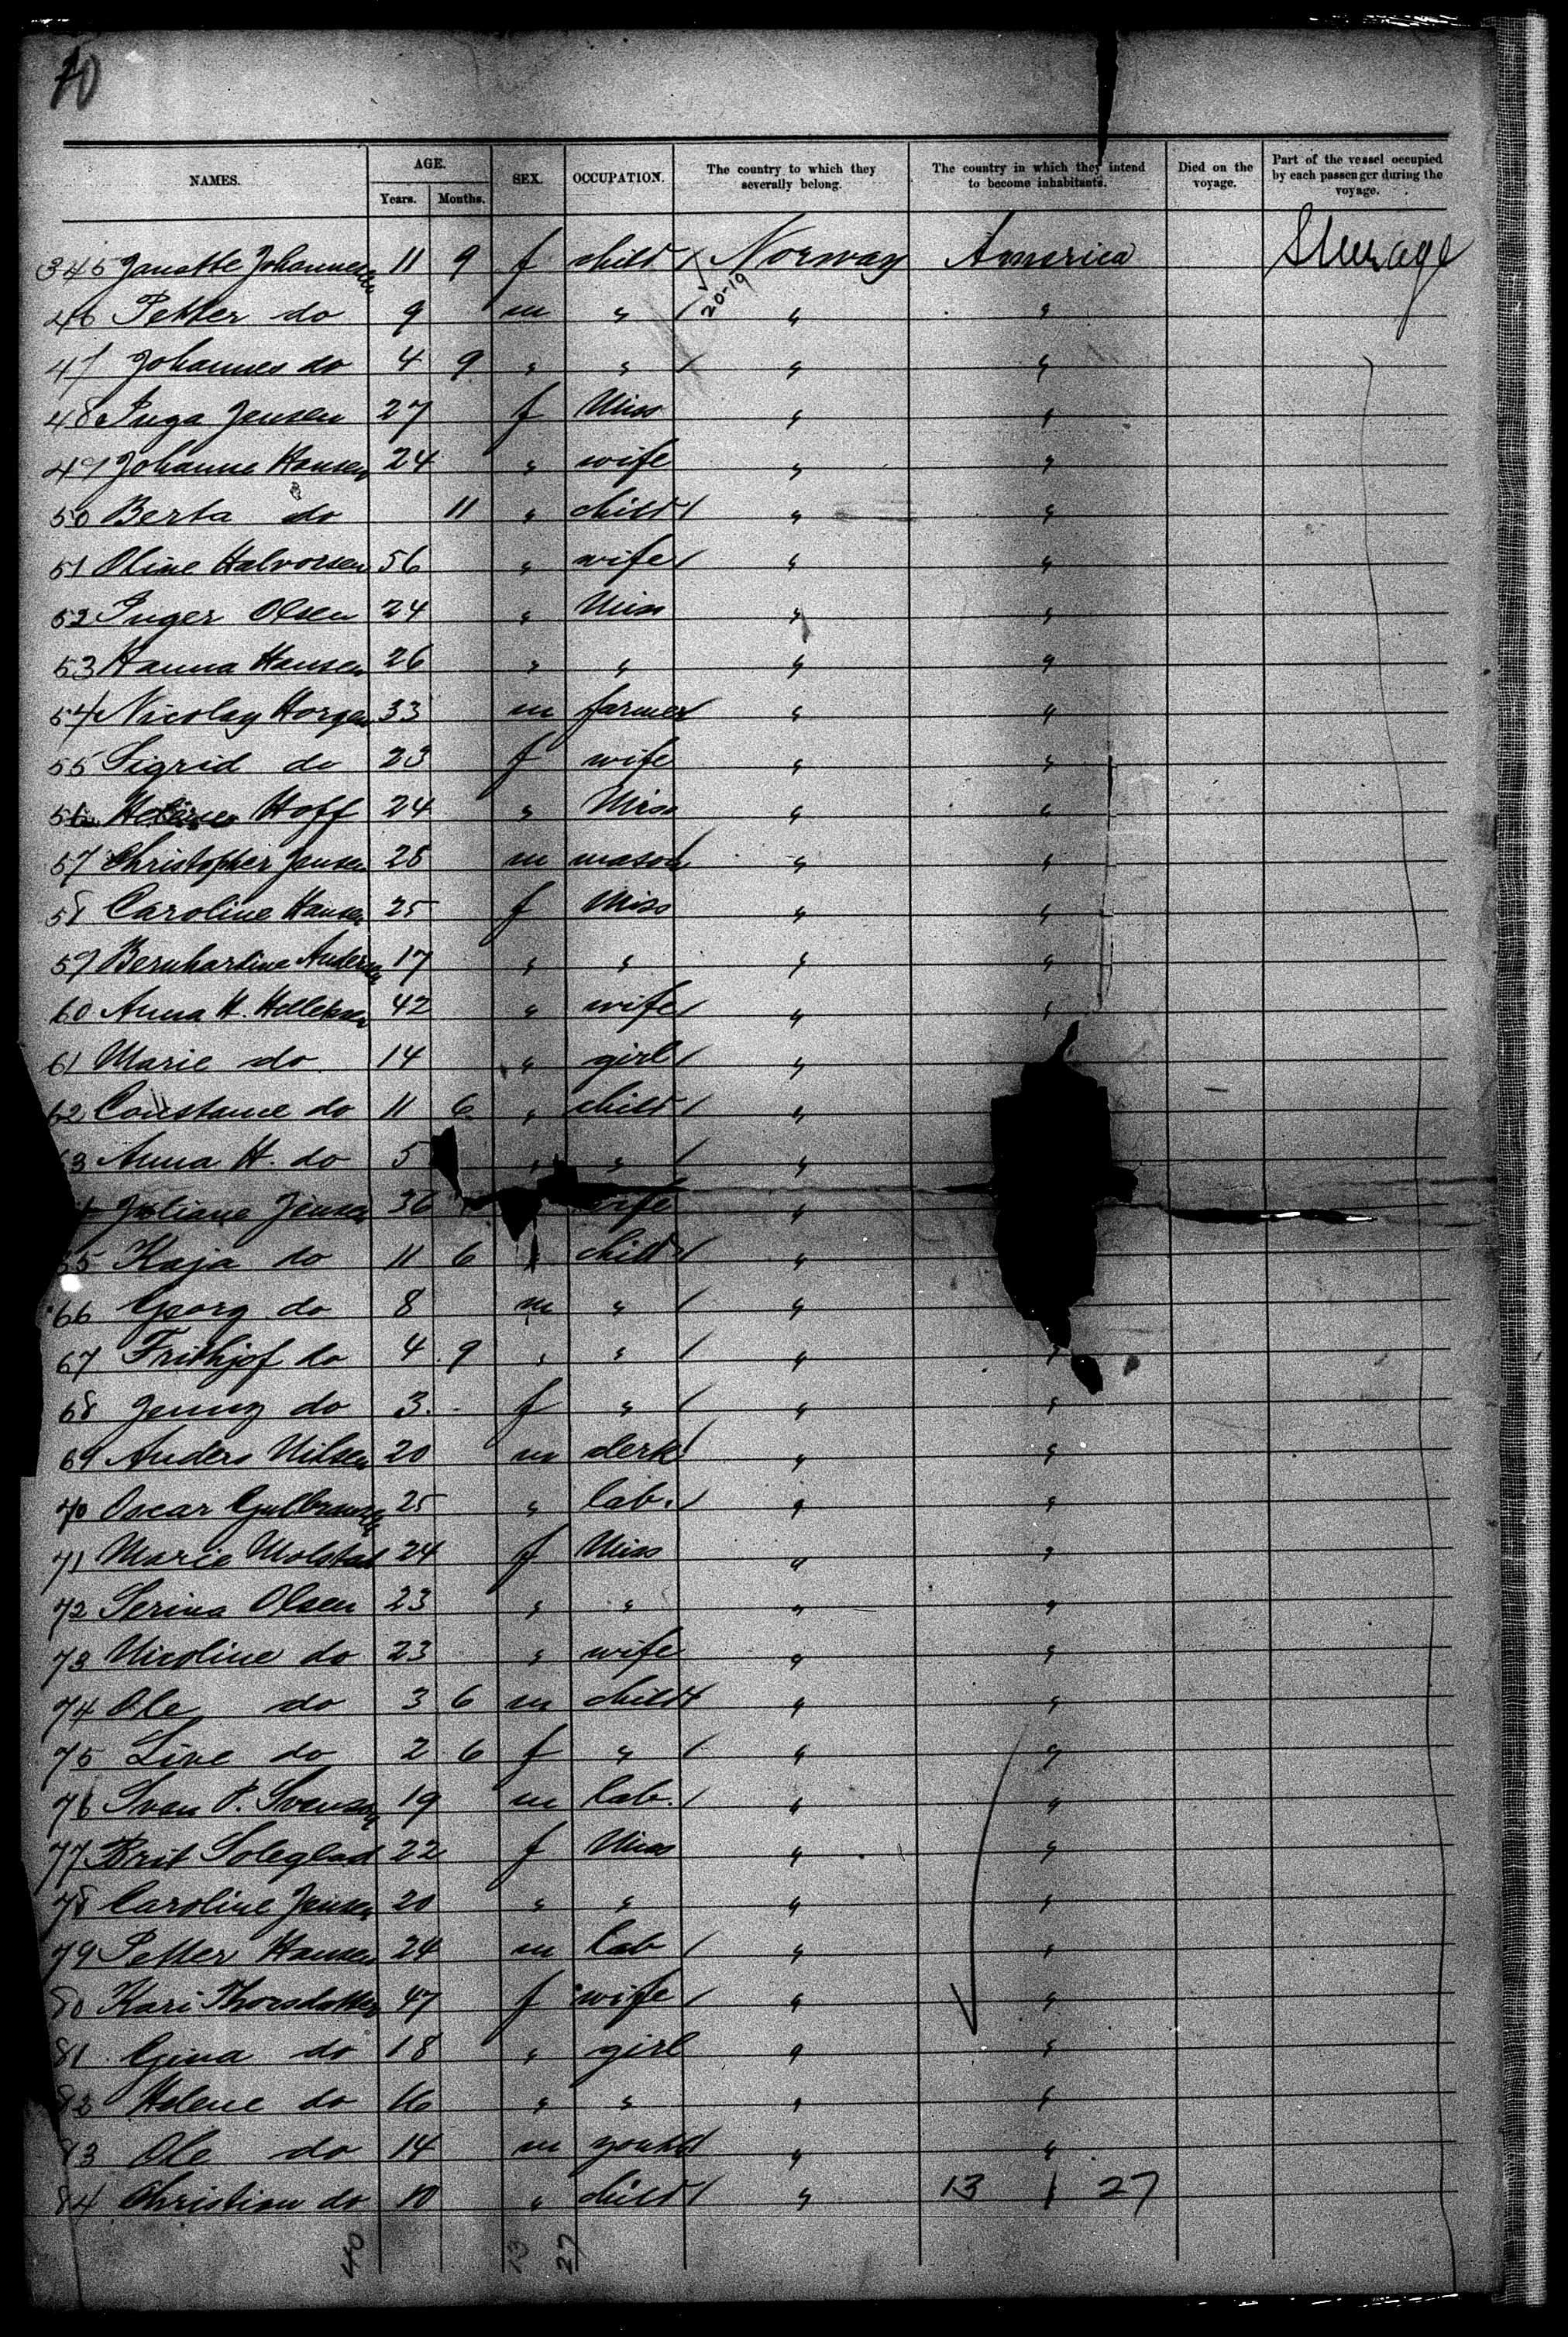 10
NAMES. AGE. Years. Months. SEX. OCCUPATION. The country to which they severally belong. The country in which they intend to become inhabitants. Died on the voyage. Part of the vessel occupied by each passenger during the voyage.
345 Janette Johannesen 11 9 f child / Norway America Steerage
20-19
46 Petter do 9 m " / " "
47 Johannes do 4 9 " " / " "
48 Inga Jensen 27 f Miss " "
49 Johanne Hansen 24 " wife " "
50 Berta do 11 " child / " "
51 Oline Halvorsen 56 " wife / " "
52 Inger Olsen 24 " Miss " "
53 Hanna Hansen 26 " " " "
54 Nicolay Horgen 33 m farmer " "
55 Sigrid do 23 f wife " "
56 Hoff 24 " Miss " "
57 Christopher Jensen 28 m mason " "
58 Caroline Hansen 25 f Miss " "
59 Bernhartine Andersen 17 " " " "
60 Anna H. Helleksen 42 " wife / " "
61 Marie do 14 " girl / " "
62 Constance do 11 6 " child / "
63 Anna H. do 5 " " / "
Juliane Jensen 36 wife "
65 Kaja do 11 6 " child / "
66 Georg do 8 m " / "
67 Frithjof do 4 9 " " / " "
68 Jenny do 3 f " / " "
69 Anders Nilsen 20 m clerk / " "
70 Oscar Gulbransen 25 " lab. / " "
71 Marie Molstad 24 f Miss " "
72 Serina Olsen 23 " " " "
73 Nicoline do 23 " wife " "
74 Ole do 3 6 m child / " "
75 Line do 2 6 f " / " "
76 Sven P. Svensen 19 m lab. / " "
77 Brit Soleglad 22 f Miss " "
78 Caroline Jensen 20 " " " "
79 Petter Hansen 24 m lab / " "
80 Kari Thorsdatter 47 f wife / " "
81 Gina do 18 " girl " "
82 Helene do 16 " " " "
83 Ole do 14 m youth / " "
84 Christian do 10 " child / " 13 / 27
40 13 27